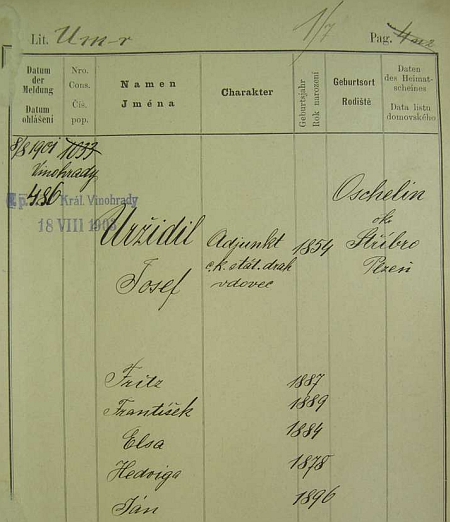 Lit. Um-r 1/7 Pag.
Datum der Meldung Nro. Cons. Namen Charakter Geburtsjahr Geburtsort Daten des Heimatscheines
Datum ohlášení Čís. pop. Jména Rok narození Rodiště Data listu domovského
8/8 1901 1033
Vinohrady
486 Král. Vinohrady
18 VIII
Uržidil Adjunkt 1854 Oschelin
Josef c.k. stát. drah ok.
vdovec Stříbro
Plzeň
Fritz 1887
František 1889
Elsa 1884
Hedviga 1878
Ján 1896